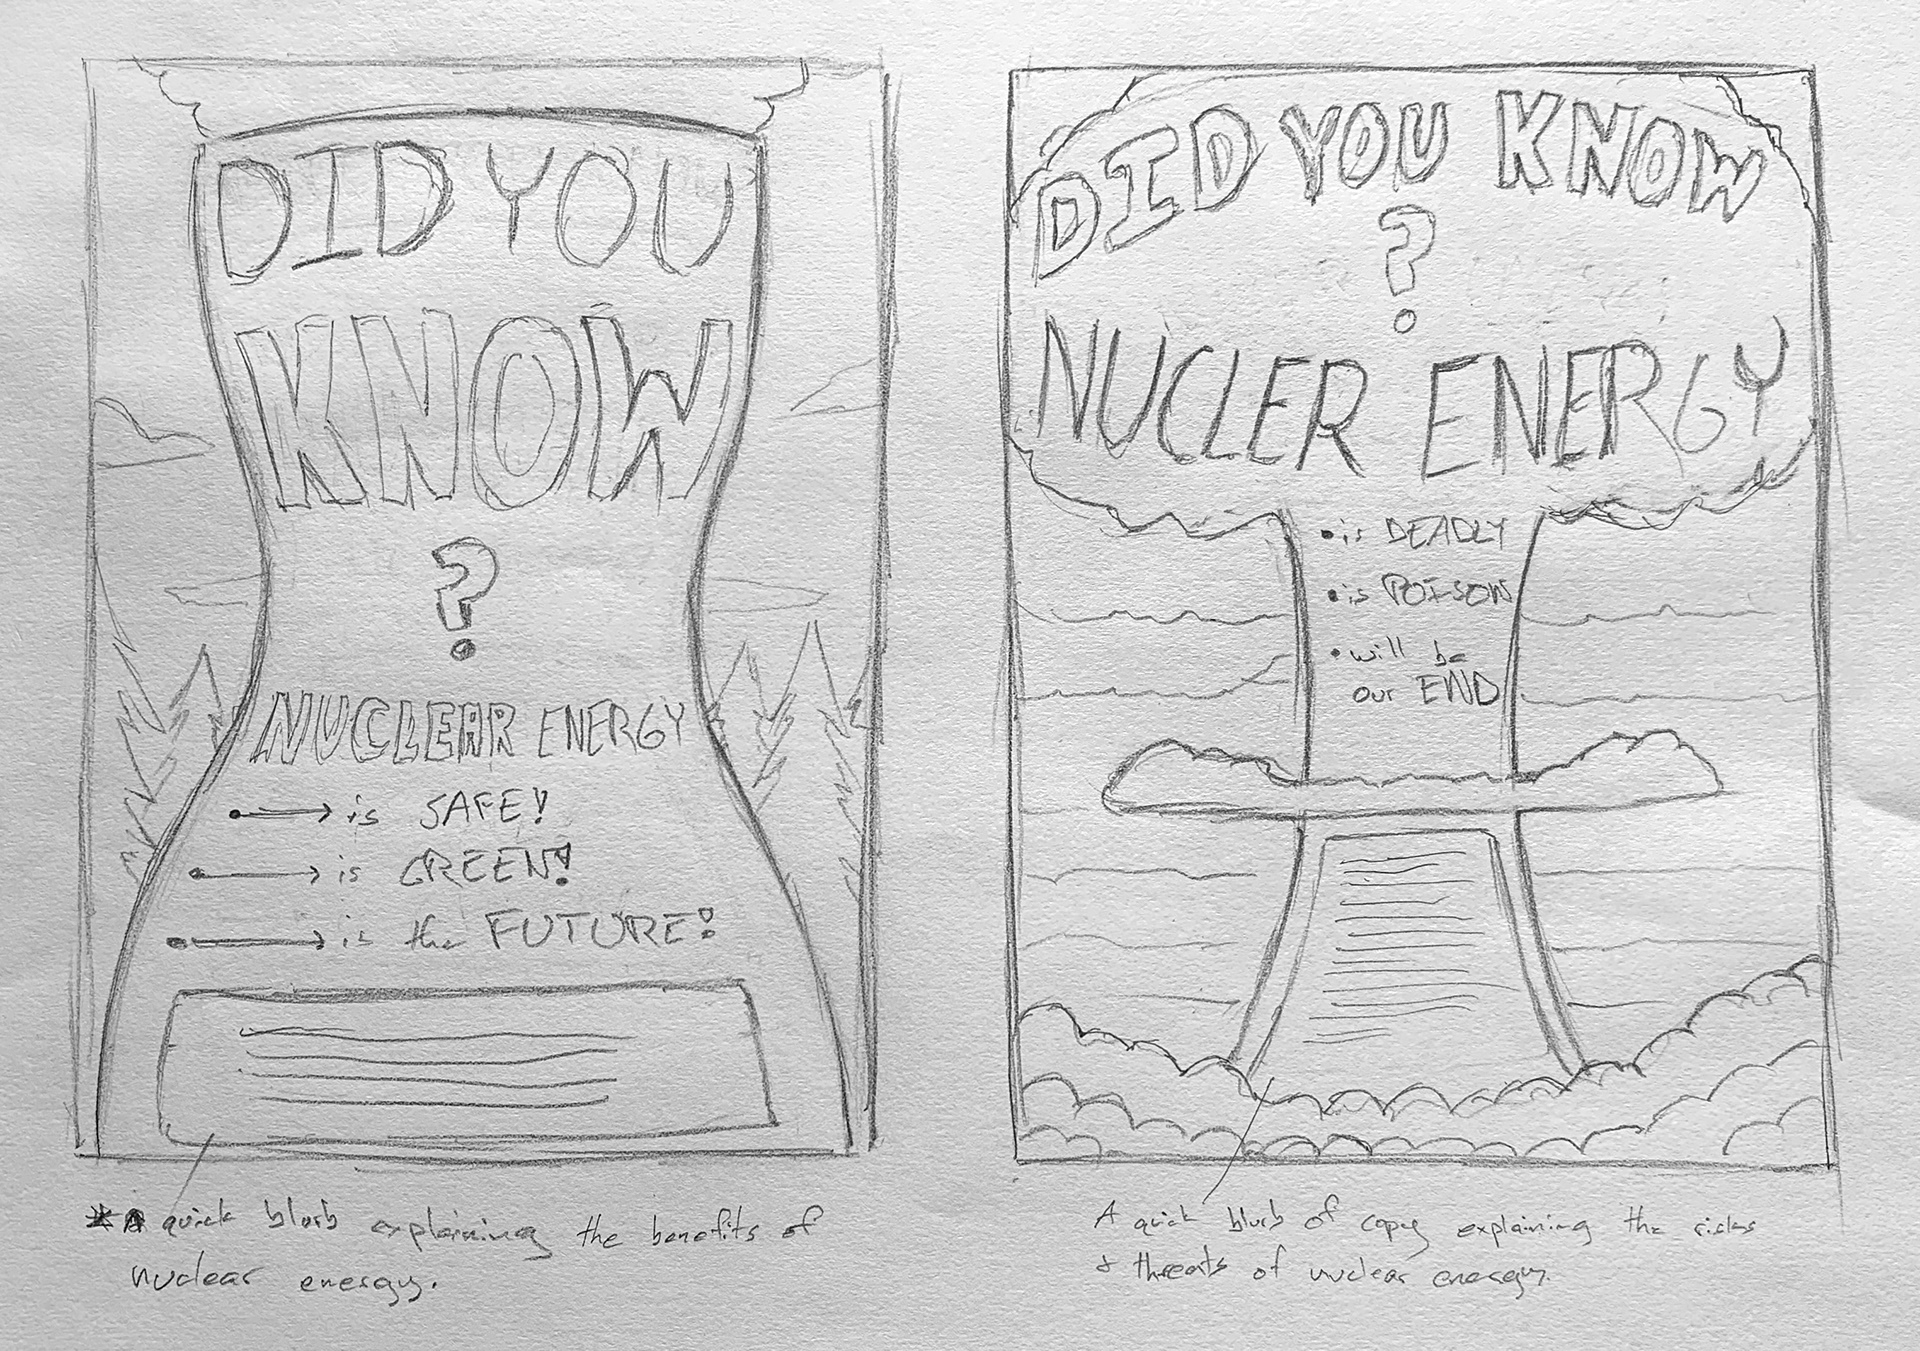 DID YOU
KNOW
?
NUCLEAR ENERGY
is SAFE!
is GREEN!
is the FUTURE!
*A quick blurb explaining the benefits of
nuclear energy.
DID YOU KNOW
?
NUCLER ENERGY
• is DEADLY
• is POISON
• will be
our END
A quick blurb of copy explaining the risks
& threats of nuclear energy.